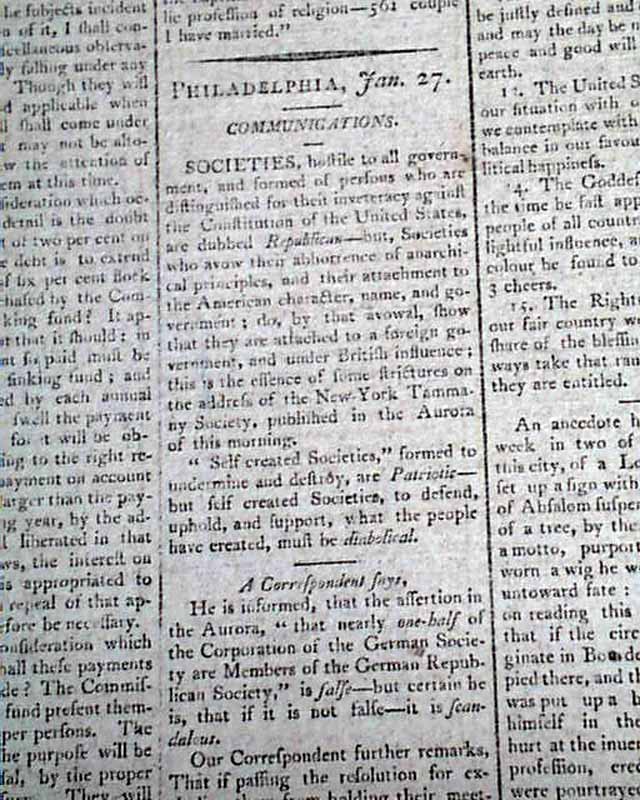 he subjects incident
n of it, I shall con-
scellaneous observa-
ly falling under any
Though they will
d applicable when
ll shall come under
a may not be alto-
w the attention of
em at this time.
sideration which oc-
detail is the doubt
t of two per cent on
e debt is to extend
of six per cent stock
chased by the Com-
king fund? It ap-
at that it should: in
nt so paid must be
sinking fund; and
ed by each annual
swell the payment
for it will be ob-
ing to the right re-
payment on account
larger than the pay-
ng year, by the ad-
l liberated in that
ws, the interest on
is appropriated to
a repeal of that ap-
efore be necessary.
onsideration which
hall these payments
de? The Commis-
fund present them-
per persons. The
he purpose will be
sal, by the proper
They will
lic profession of religion—561 couple
I have married."
PHILADELPHIA, Jan. 27.
COMMUNICATIONS.
SOCIETIES, hostile to all govern-
ment, and formed of persons who are
distinguished for their inveteracy against
the Constitution of the United States,
are dubbed Republican—but, Societies
who avow their abhorrence of anarchi-
cal principles, and their attachment to
the American character, name, and go-
vernment; do, by that avowal, show
that they are attached to a foreign go-
vernment, and under British influence;
this is the essence of some strictures on
the address of the New-York Tamma-
ny Society, published in the Aurora
of this morning.
" Self created Societies," formed to
undermine and destroy, are Patriotic—
but self created Societies, to defend,
uphold, and support, what the people
have created, must be diabolical.
A Correspondent says,
He is informed, that the assertion in
the Aurora, " that nearly one-half of
the Corporation of the German Socie-
ty are Members of the German Repub-
lican Society," is false—but certain he
is, that if it is not false—it is scan-
dalous.
Our Correspondent further remarks,
That if passing the resolution for ex-
them from holding their meet-
be justly defined and
and may the day be
peace and good will
earth.
The United S
our situation with
we contemplate with
balance in our favou
litical happiness.
14. The Goddess
the time be fast app
people of all countr
lightful influence, a
colour be found to
3 cheers.
15. The Right
our fair country w
share of the blessin
ways take that ran
they are entitled.
An anecdote h
week in two of
this city, of a Lo
set up a sign with
of Absalom suspe
of a tree, by the
a motto, purport
worn a wig he w
untoward fate:
on reading this
that if the circ
ginate in
pied there, and th
was put up a h
himself in the
hurt at the inue
profession, cre
were pourtraye